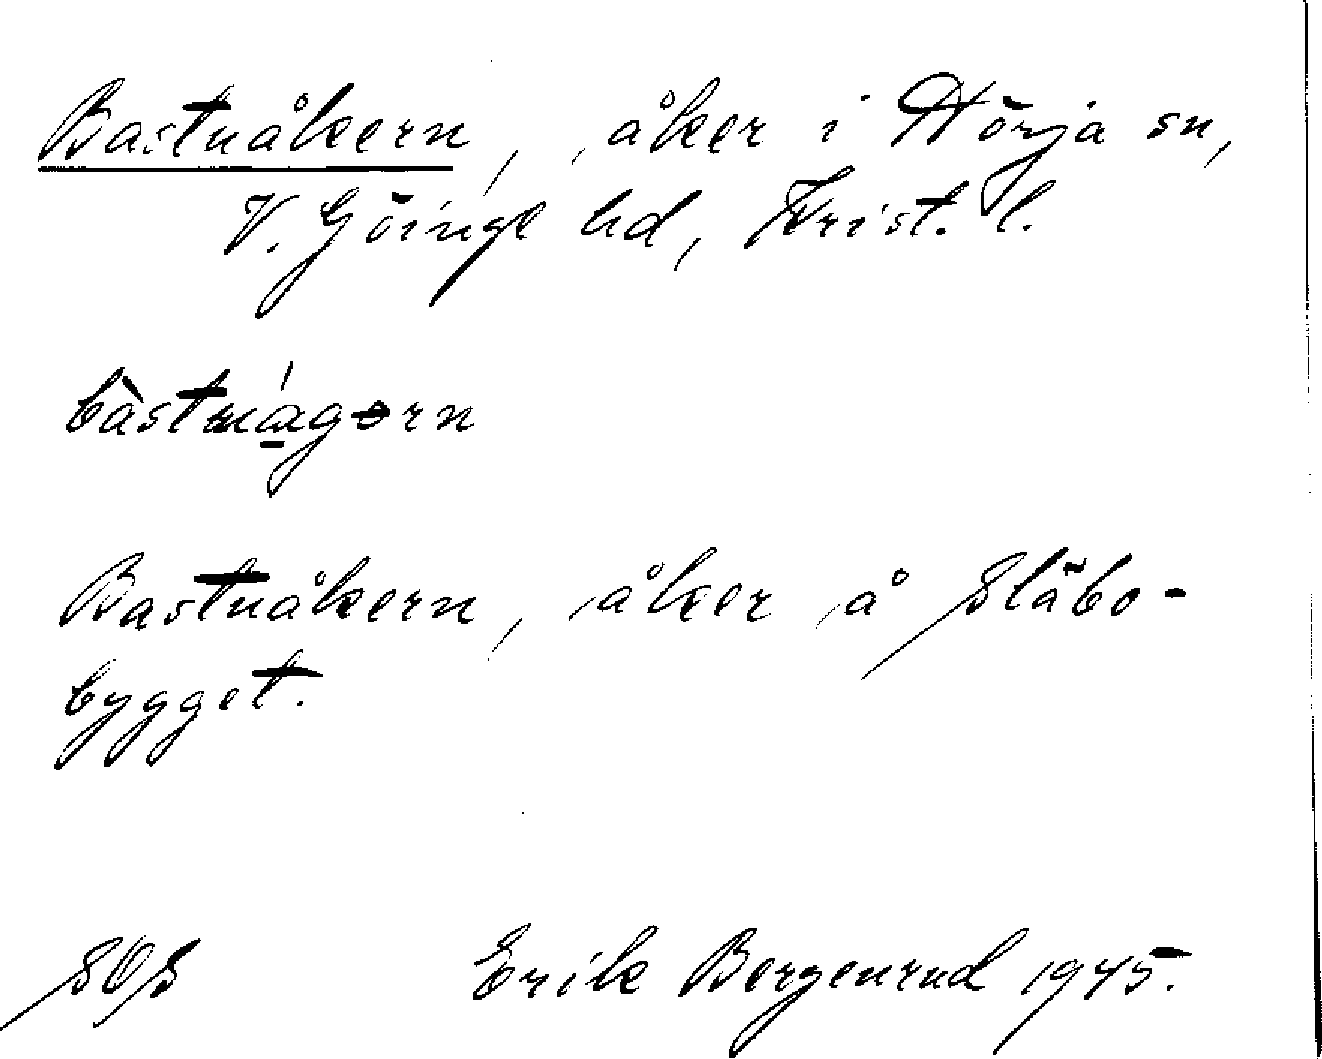 Bastnåkern, åker i Hörja sn,
V. Göinge hd, Krist. l.
bàstnágərn
Bastnåkern, åker å Släbo-
bygget.
SOS Erik Bergenrud 1945.